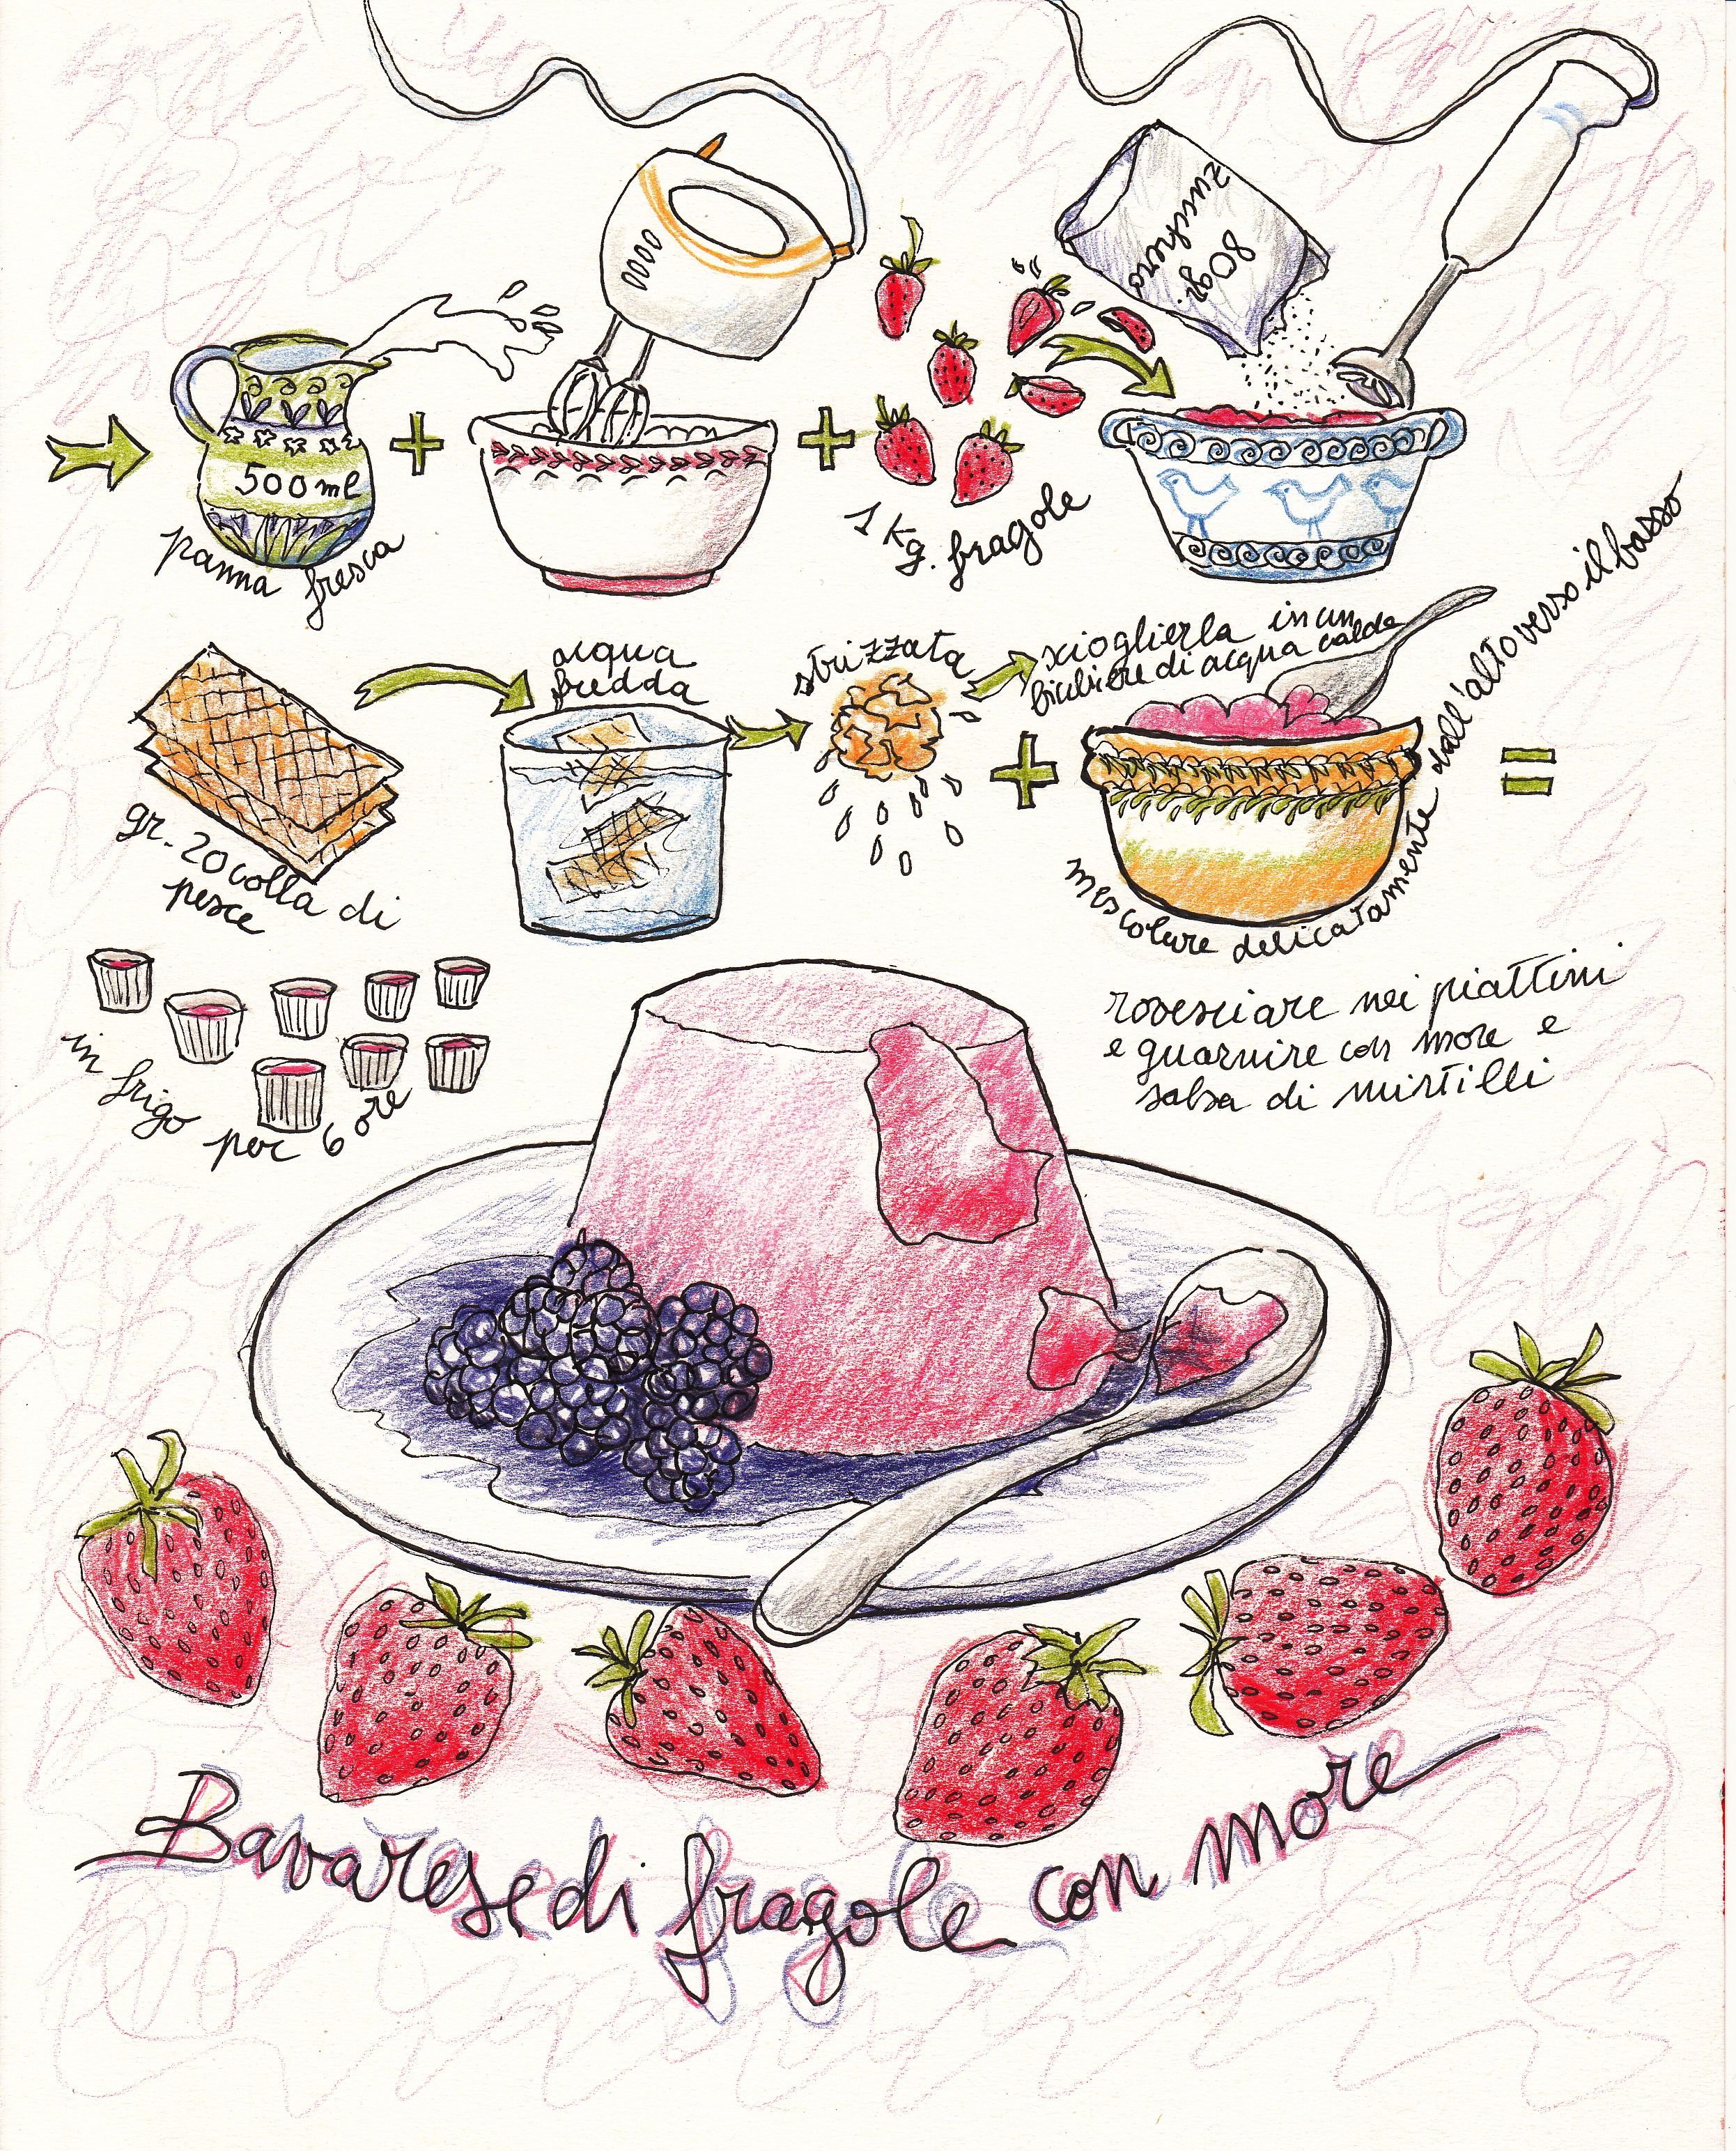 500 ml
panna fresca
1 Kg. fragole
80 gr.
zucchero
gr. 20 colla di
pesce
acqua
fredda
strizzata
scioglierla in un
bicchiere di acqua calda
mescolare delicatamente dall'alto verso il basso
in frigo per 6 ore
rovesciare nei piattini
e guarnire con more e
salsa di mirtilli
Bavarese di fragole con more